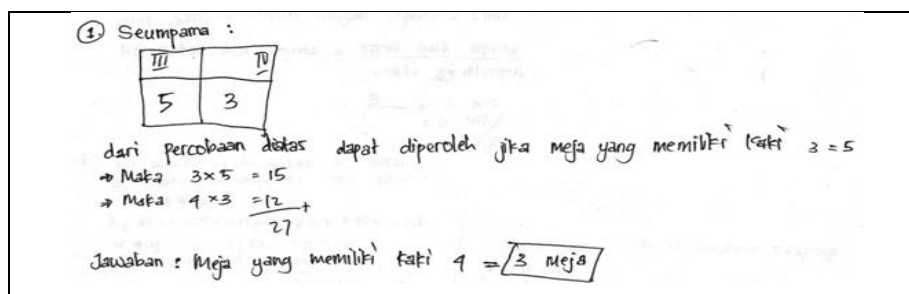 ① Seumpama :
III IV
5 3
dari percobaan diatas dapat diperoleh jika meja yang memiliki kaki 3 = 5
→ Maka 3 × 5 = 15
→ Maka 4 × 3 = 12 +
27
Jawaban : Meja yang memiliki kaki 4 = 3 Meja